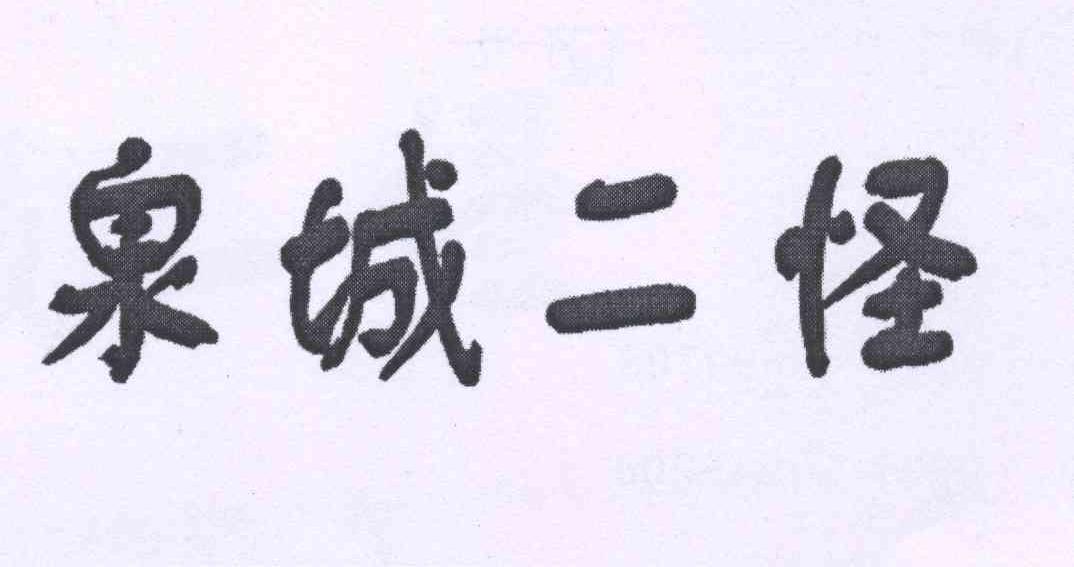 泉城二怪